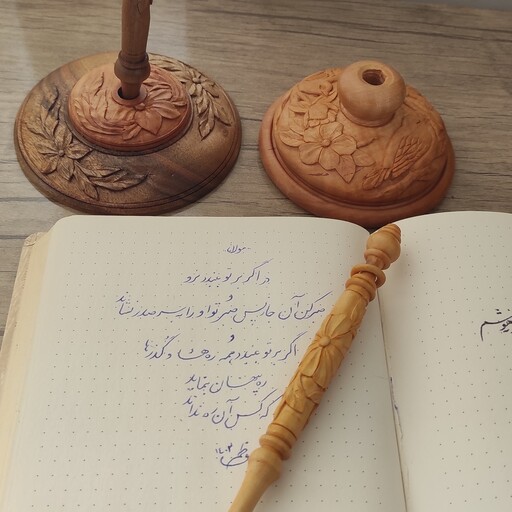 مولانا
در اگر بر تو ببندد مرو
و
صبر کن آن جا که پس صبر تو را او به سر صدر نشاند
و
اگر بر تو ببندد همه ره‌ها و گذرها
ره پنهان بنماید
که کس آن ره نداند